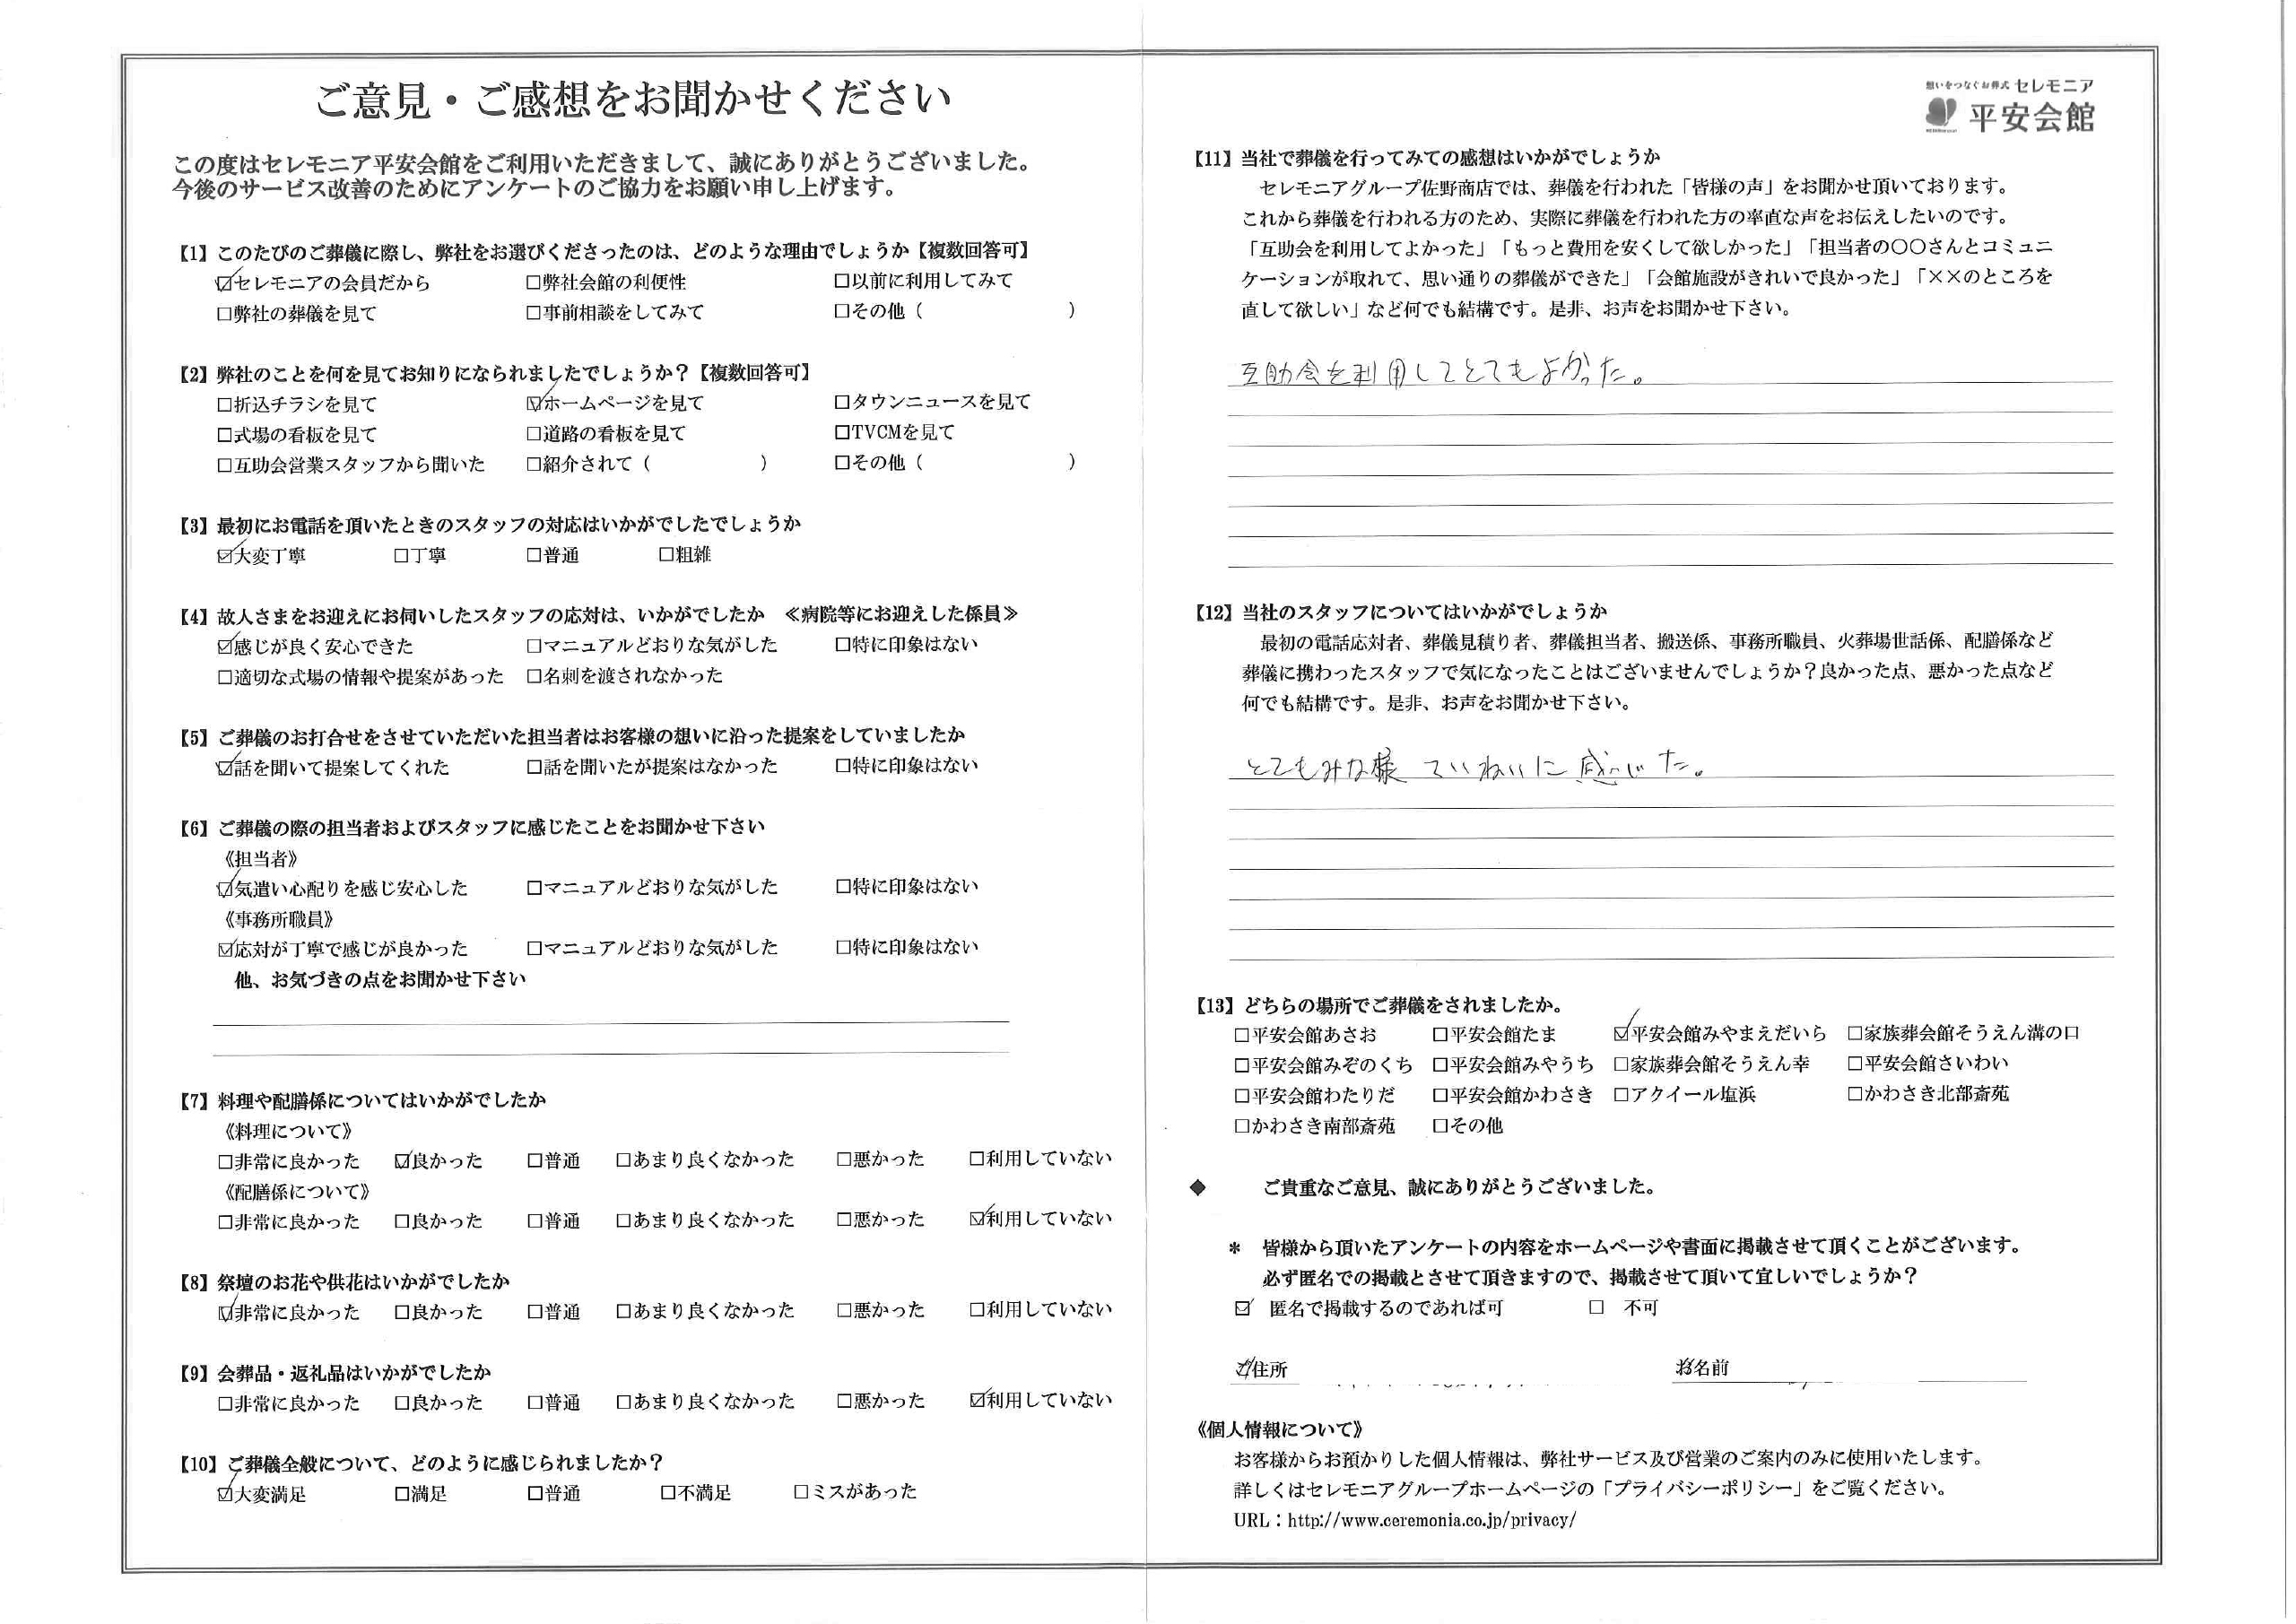 ご意見・ご感想をお聞かせください
この度はセレモニア平安会館をご利用いただきまして、誠にありがとうございました。
今後のサービス改善のためにアンケートのご協力をお願い申し上げます。
【1】このたびのご葬儀に際し、弊社をお選びくださったのは、どのような理由でしょうか【複数回答可】
☑セレモニアの会員だから □弊社会館の利便性 □以前に利用してみて
□弊社の葬儀を見て □事前相談をしてみて □その他（ ）
【2】弊社のことを何を見てお知りになられましたでしょうか？【複数回答可】
□折込チラシを見て ☑ホームページを見て □タウンニュースを見て
□式場の看板を見て □道路の看板を見て □TVCMを見て
□互助会営業スタッフから聞いた □紹介されて（ ） □その他（ ）
【3】最初にお電話を頂いたときのスタッフの対応はいかがでしたでしょうか
☑大変丁寧 □丁寧 □普通 □粗雑
【4】故人さまをお迎えにお伺いしたスタッフの応対は、いかがでしたか ≪病院等にお迎えした係員≫
☑感じが良く安心できた □マニュアルどおりな気がした □特に印象はない
□適切な式場の情報や提案があった □名刺を渡されなかった
【5】ご葬儀のお打合せをさせていただいた担当者はお客様の想いに沿った提案をしていましたか
☑話を聞いて提案してくれた □話を聞いたが提案はなかった □特に印象はない
【6】ご葬儀の際の担当者およびスタッフに感じたことをお聞かせ下さい
《担当者》
☑気遣い心配りを感じ安心した □マニュアルどおりな気がした □特に印象はない
《事務所職員》
☑応対が丁寧で感じが良かった □マニュアルどおりな気がした □特に印象はない
他、お気づきの点をお聞かせ下さい
【7】料理や配膳係についてはいかがでしたか
《料理について》
□非常に良かった ☑良かった □普通 □あまり良くなかった □悪かった □利用していない
《配膳係について》
□非常に良かった □良かった □普通 □あまり良くなかった □悪かった ☑利用していない
【8】祭壇のお花や供花はいかがでしたか
☑非常に良かった □良かった □普通 □あまり良くなかった □悪かった □利用していない
【9】会葬品・返礼品はいかがでしたか
□非常に良かった □良かった □普通 □あまり良くなかった □悪かった ☑利用していない
【10】ご葬儀全般について、どのように感じられましたか？
☑大変満足 □満足 □普通 □不満足 □ミスがあった
想いをつなぐお葬式 セレモニア
平安会館
【11】当社で葬儀を行ってみての感想はいかがでしょうか
セレモニアグループ佐野商店では、葬儀を行われた「皆様の声」をお聞かせ頂いております。
これから葬儀を行われる方のため、実際に葬儀を行われた方の率直な声をお伝えしたいのです。
「互助会を利用してよかった」「もっと費用を安くして欲しかった」「担当者の〇〇さんとコミュニ
ケーションが取れて、思い通りの葬儀ができた」「会館施設がきれいで良かった」「××のところを
直して欲しい」など何でも結構です。是非、お声をお聞かせ下さい。
互助会を利用してとてもよかった。
【12】当社のスタッフについてはいかがでしょうか
最初の電話応対者、葬儀見積り者、葬儀担当者、搬送係、事務所職員、火葬場世話係、配膳係など
葬儀に携わったスタッフで気になったことはございませんでしょうか？良かった点、悪かった点など
何でも結構です。是非、お声をお聞かせ下さい。
とてもみな様 ていねいに感じた。
【13】どちらの場所でご葬儀をされましたか。
□平安会館あさお □平安会館たま ☑平安会館みやまえだいら □家族葬会館そうえん溝の口
□平安会館みぞのくち □平安会館みやうち □家族葬会館そうえん幸 □平安会館さいわい
□平安会館わたりだ □平安会館かわさき □アクイール塩浜 □かわさき北部斎苑
□かわさき南部斎苑 □その他
◆ ご貴重なご意見、誠にありがとうございました。
＊ 皆様から頂いたアンケートの内容をホームページや書面に掲載させて頂くことがございます。
必ず匿名での掲載とさせて頂きますので、掲載させて頂いて宜しいでしょうか？
☑ 匿名で掲載するのであれば可 □ 不可
ご住所 お名前
《個人情報について》
お客様からお預かりした個人情報は、弊社サービス及び営業のご案内のみに使用いたします。
詳しくはセレモニアグループホームページの「プライバシーポリシー」をご覧ください。
URL：http://www.ceremonia.co.jp/privacy/